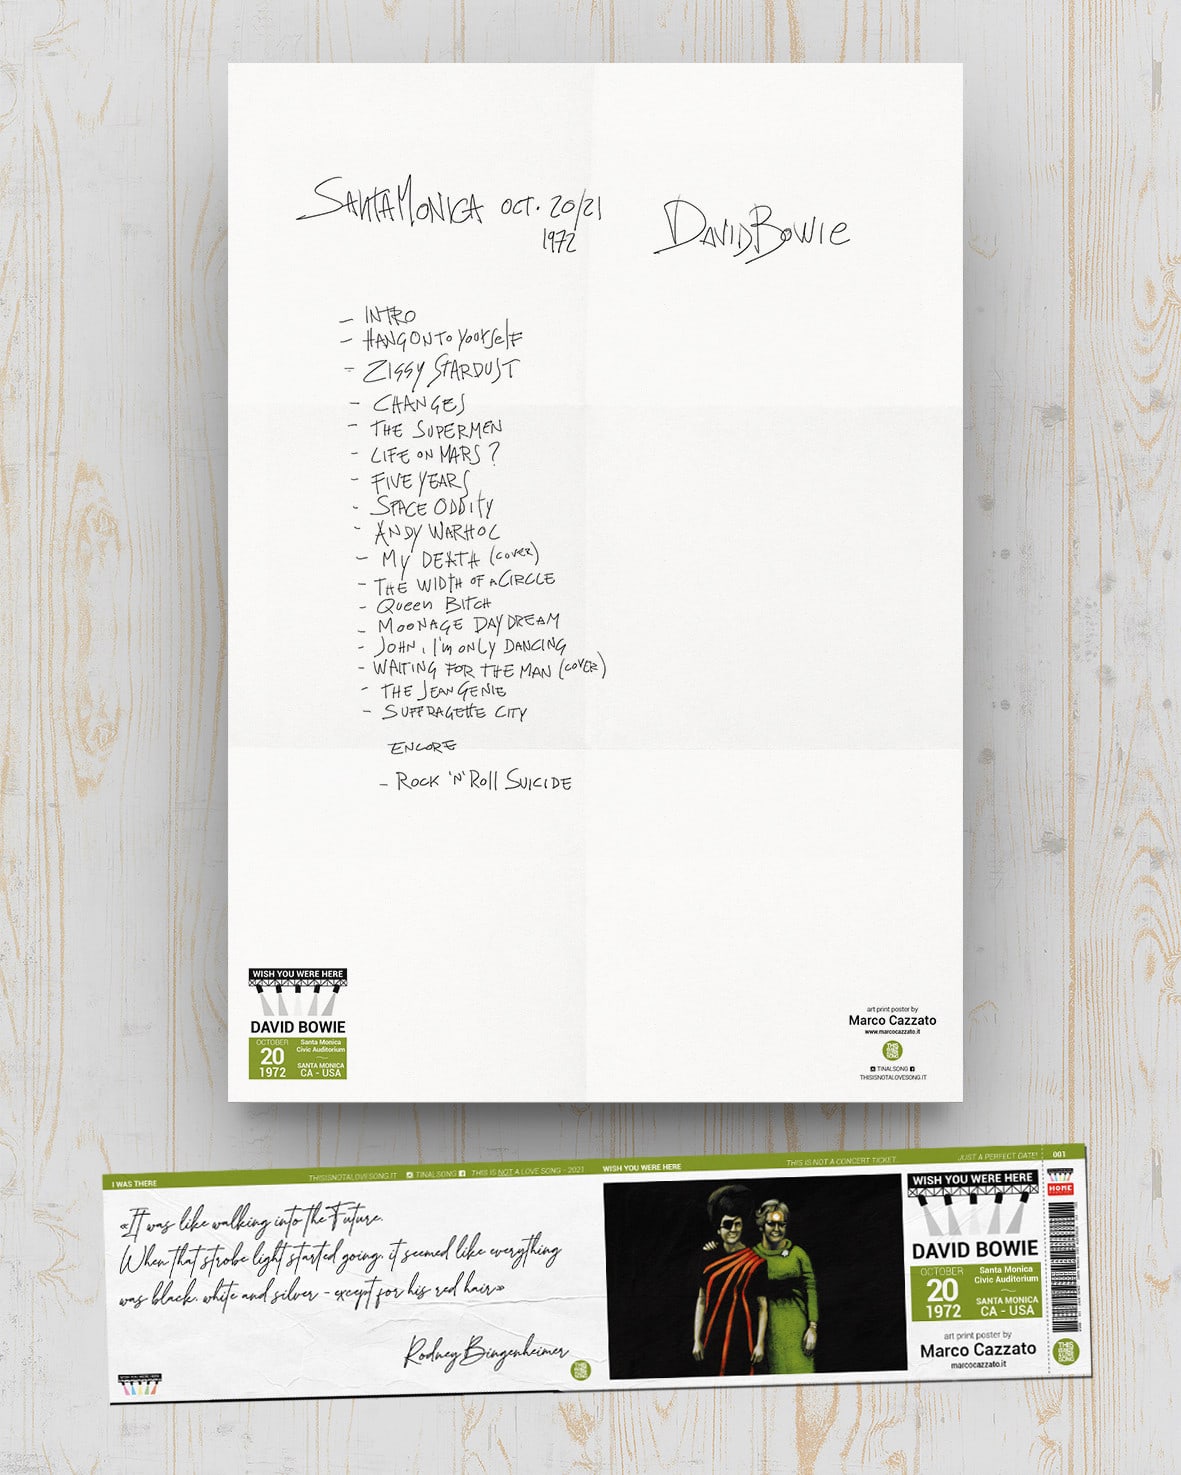 SANTA MONICA OCT. 20/21
1972
DAVID BOWIE
- INTRO
- HANG ONTO YOURSELF
- ZIGGY STARDUST
- CHANGES
- THE SUPERMEN
- LIFE ON MARS?
- FIVE YEARS
- SPACE ODDITY
- ANDY WARHOL
- MY DEATH (COVER)
- THE WIDTH OF A CIRCLE
- Queen BITCH
- MOONAGE DAYDREAM
- JOHN, I'm ONLY DANCING
- WAITING FOR THE MAN (COVER)
- THE JEAN GENIE
- SUFFRAGETTE CITY
ENCORE
- ROCK 'N' Roll SUICIDE
WISH YOU WERE HERE
DAVID BOWIE
OCTOBER
20
1972
Santa Monica
Civic Auditorium
SANTA MONICA
CA - USA
art print poster by
Marco Cazzato
www.marcocazzato.it
TINALSONG
THISISNOTALOVESONG.IT
I WAS THERE
THISISNOTALOVESONG.IT TINALSONG THIS IS NOT A LOVE SONG - 2021
WISH YOU WERE HERE
THIS IS NOT A CONCERT TICKET.
JUST A PERFECT DATE!
001
«It was like walking into the Future.
When that strobe light started going, it seemed like everything
was black, white and silver - except for his red hair»
Rodney Bingenheimer
WISH YOU WERE HERE
WISH YOU WERE HERE
DAVID BOWIE
OCTOBER
20
1972
Santa Monica
Civic Auditorium
SANTA MONICA
CA - USA
art print poster by
Marco Cazzato
marcocazzato.it
HOME